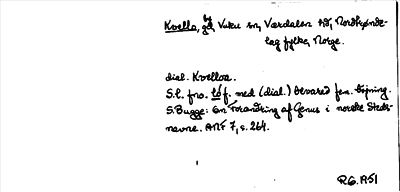 Kvello, gd, Vuku sn, Værdalen hd, Nordtrønde-
lag fylke, Norge.
dial. Kvelloa.
S.l. fno. ló f. med (dial.) bevared fem. bøjning.
S.Bugge: En Forandring af Genus i norske Steds-
navne. ANF 7, s. 264.
RG. A51